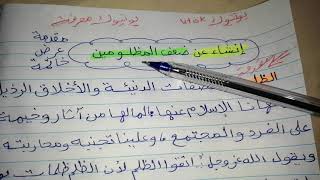 يوتيوك utok يوتيوك معروفة
مقدمة
عرض
خاتمة
إنشاء عن ضعف المظلومين
الظل
صفات الدنيئة والأخلاق الرذيل
نهانا الإسلام عنها، لمالها من آثار وخيمة
على الفرد والمجتمع، وعلينا تجنبه ومحاربته
ويقول الله عز وجل: اتقوا الظلم لأن الظلم ظلمات يو